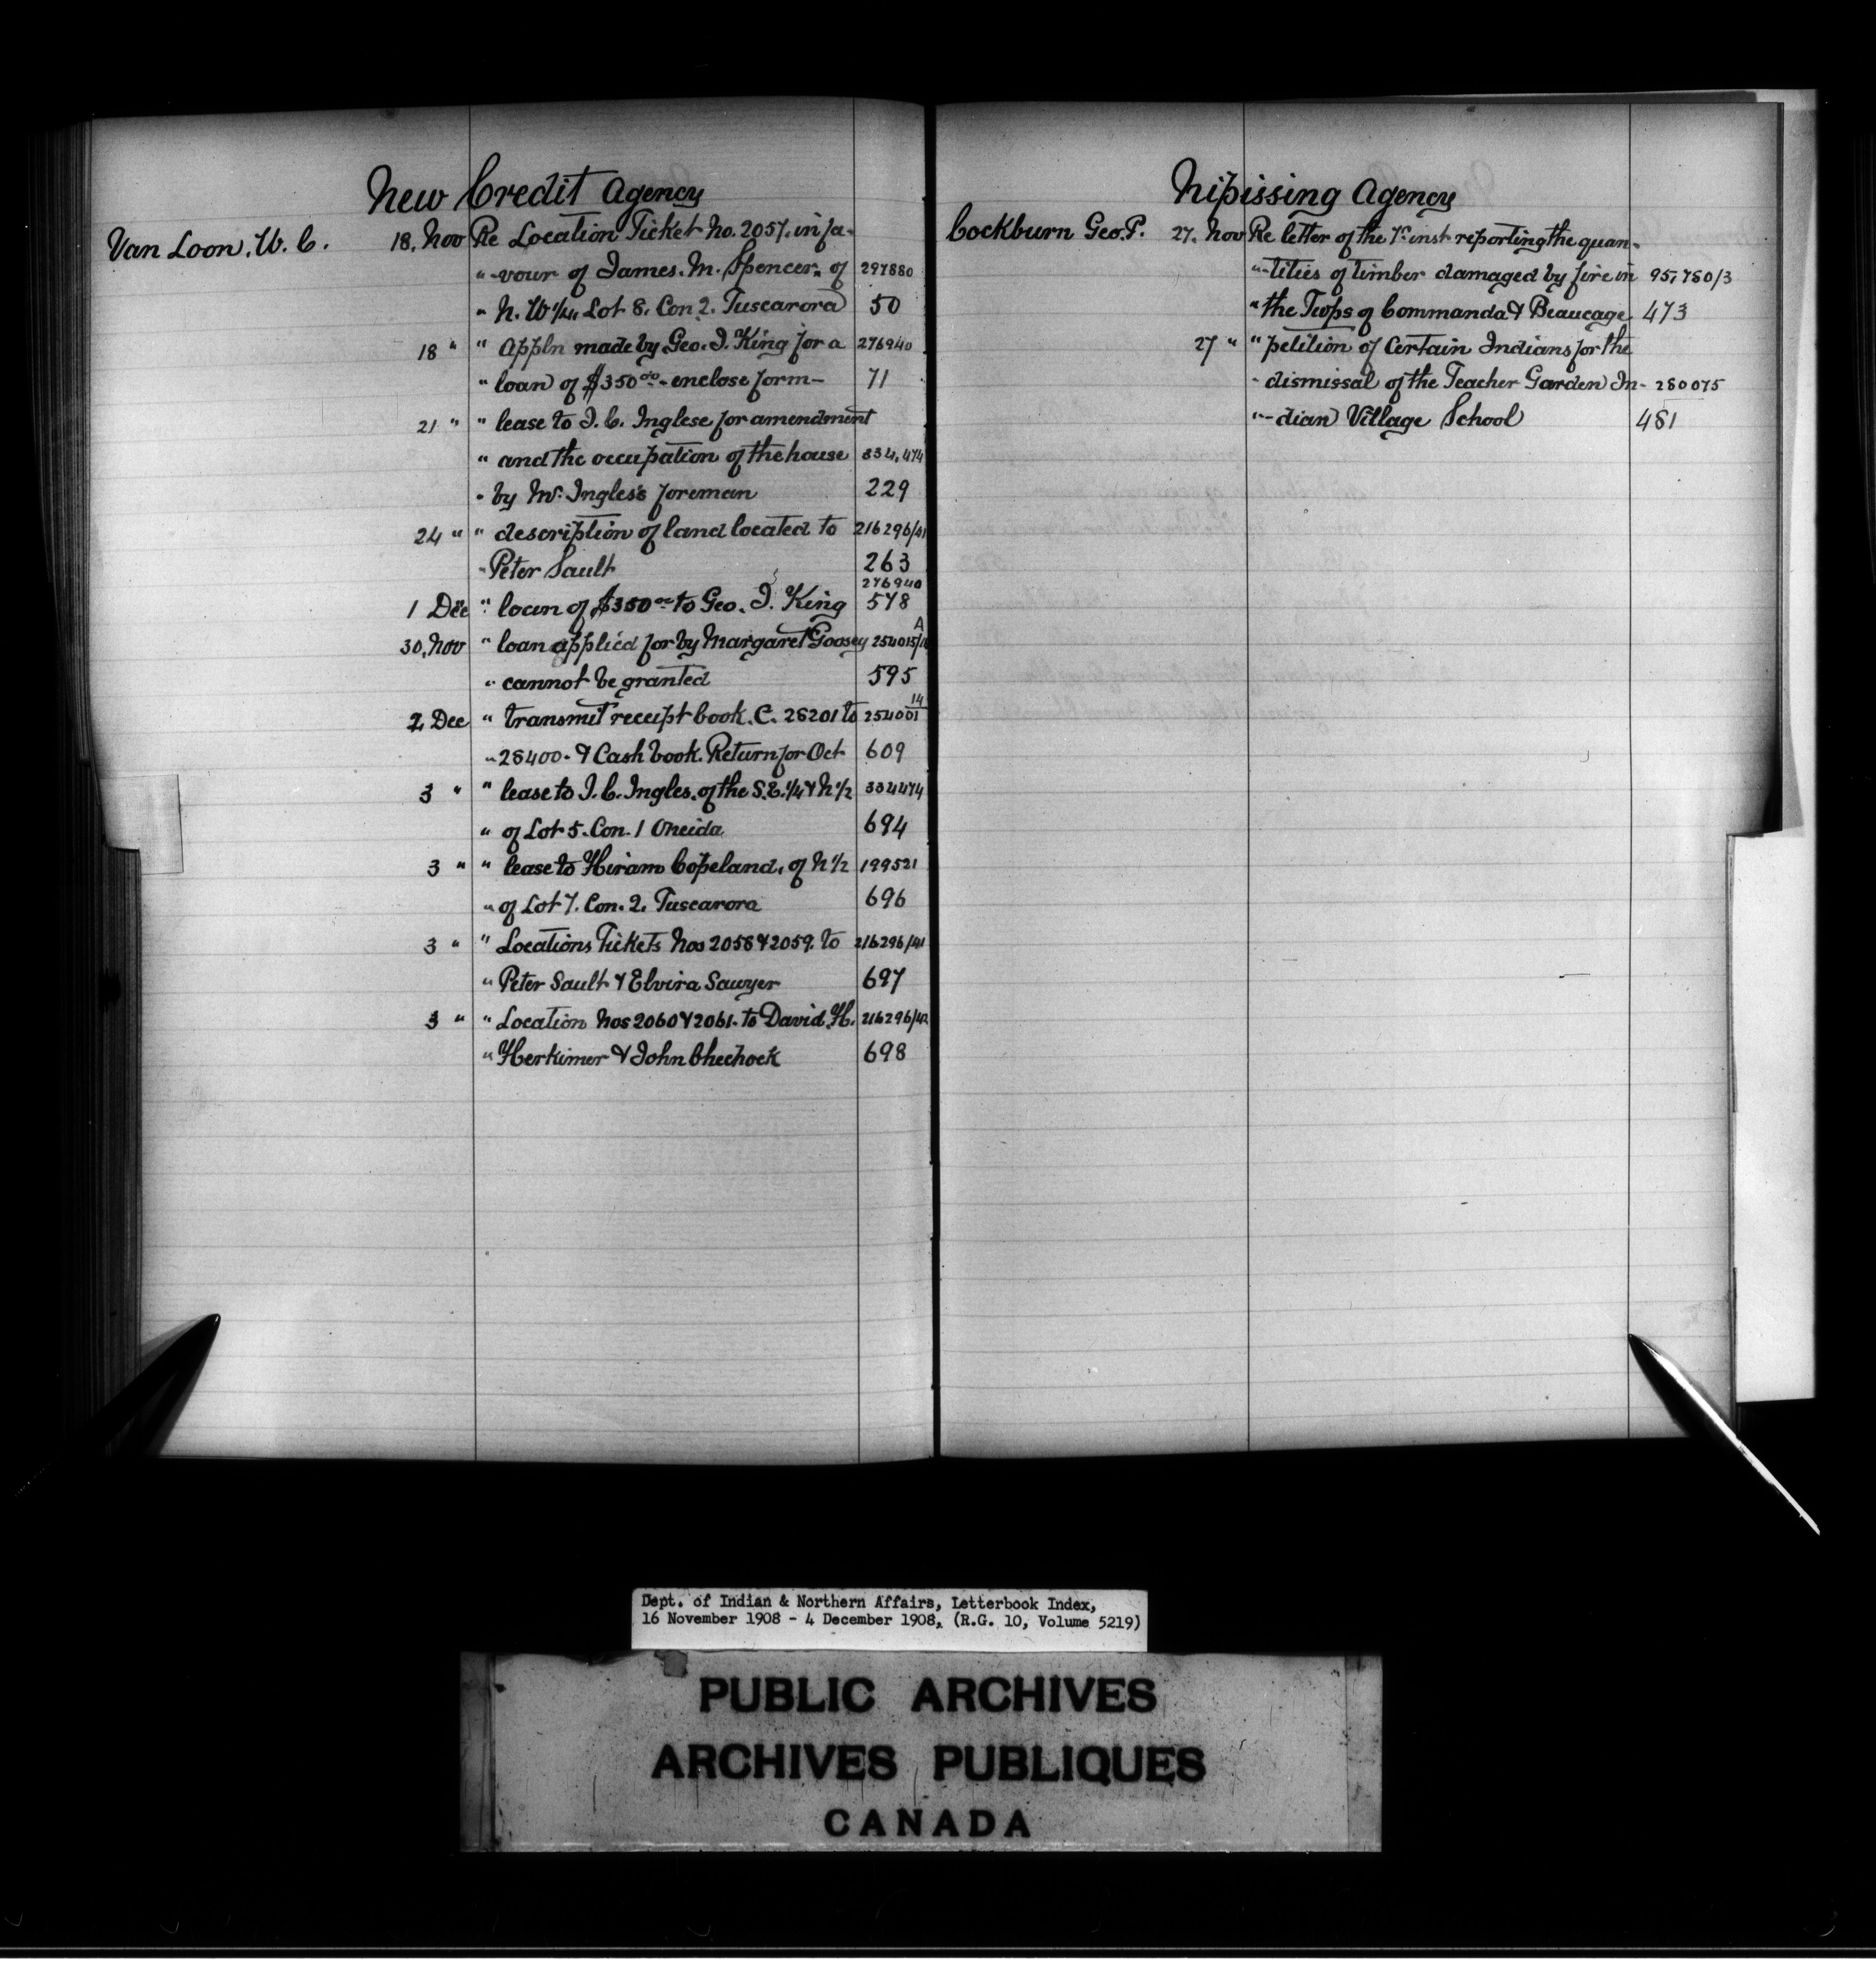 New Credit Agency
Van Loon. W. C. 18. Nov Re Location Ticket No. 2057. in fa-
" -vour of James. M. Spencer. of 297880
" N. W 1/4. Lot 8. Con 2. Tuscarora 50
18 " " Appln made by Geo. I. King for a 276940
" loan of $350.00 - enclose form - 71
21 " " lease to I. C. Inglese for amendment
" and the occupation of the house 334,474
" by Mr. Ingles's foreman 229
24 " " description of land located to 216296/41
" Peter Sault 263
276940
1 Dec " loan of $350.00 to Geo. I. King 578
30. Nov " loan applied for by Margaret Goosey 254015/ A
" cannot be granted 595
2 Dec " transmit receipt book. C. 28201 to 254001 14
" 28400. & Cash book. Return for Oct 609
3 " " lease to I. C. Ingles. of the S.E. 1/4 & N 1/2 334474
" of Lot 5. Con. 1 Oneida 694
3 " " lease to Hiram Copeland. of N 1/2 199521
" of Lot 7. Con. 2. Tuscarora 696
3 " " Locations Tickets Nos 2058 & 2059. to 216296/41
" Peter Sault & Elvira Sawyer 697
3 " " Location Nos 2060 & 2061. to David. H. 216296/42
" Herkimer & John Chechock 698
Nipissing Agency
Cockburn Geo. P. 27. Nov Re letter of the inst reporting the quan-
" -tities of timber damaged by fire in 95,780/3
" the Twps of Commanda & Beaucage 473
27 " " petition of Certain Indians for the
" dismissal of the Teacher Garden In- 280075
" -dian Village School 481
Dept. of Indian & Northern Affairs, Letterbook Index,
16 November 1908 - 4 December 1908, (R.G. 10, Volume 5219)
PUBLIC ARCHIVES
ARCHIVES PUBLIQUES
CANADA